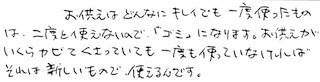 お供えは どんなに キレイでも 一度使ったもの
は、二度と使えないので、「ゴミ」になります。お供えが
いくらカビてくさっていても 一度も使っていなければ
それは 新しいもので、使えるんです。